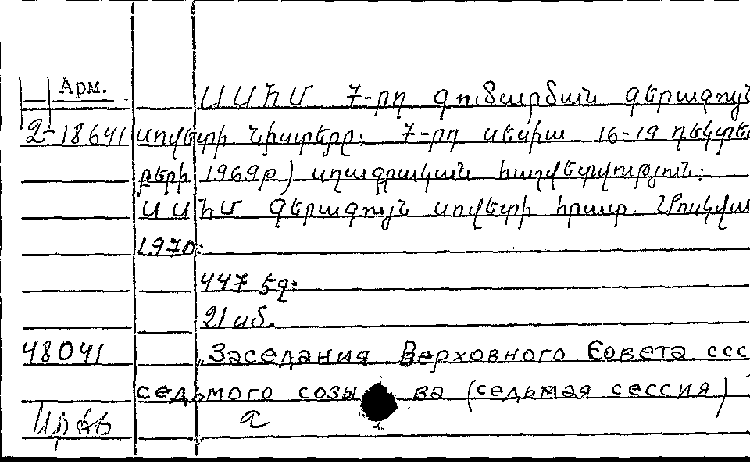 Арм.
ՍՍՀՄ 7-րդ գումարման գերագույն
2-18641 սովետի նիստերը: 7-րդ սեսիա 16-19 դեկտեմ
բերի 1969թ.) սղագրական հաշվետվություն:
ՍՍՀՄ գերագույն սովետի հրատ. Մոսկվա
1970:
447 էջ:
21 սմ.
48041 Заседания Верховного Совета ссс
седьмого созы ва (седьмая сессия)